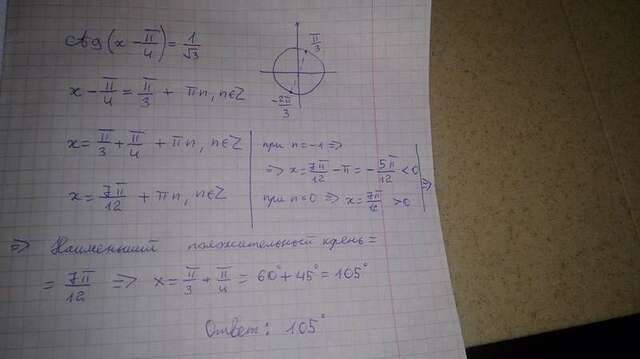 ctg(x - π/4) = 1/√3
π/3
-2π/3
x - π/4 = π/3 + πn, n∈Z
x = π/3 + π/4 + πn, n∈Z
x = 7π/12 + πn, n∈Z
при n=-1 ⇒
⇒ x = 7π/12 - π = -5π/12 < 0
при n=0 ⇒ x = 7π/12 > 0
⇒
⇒ Наименьший положительный крень =
= 7π/12 ⇒ x = π/3 + π/4 = 60° + 45° = 105°
Ответ: 105°